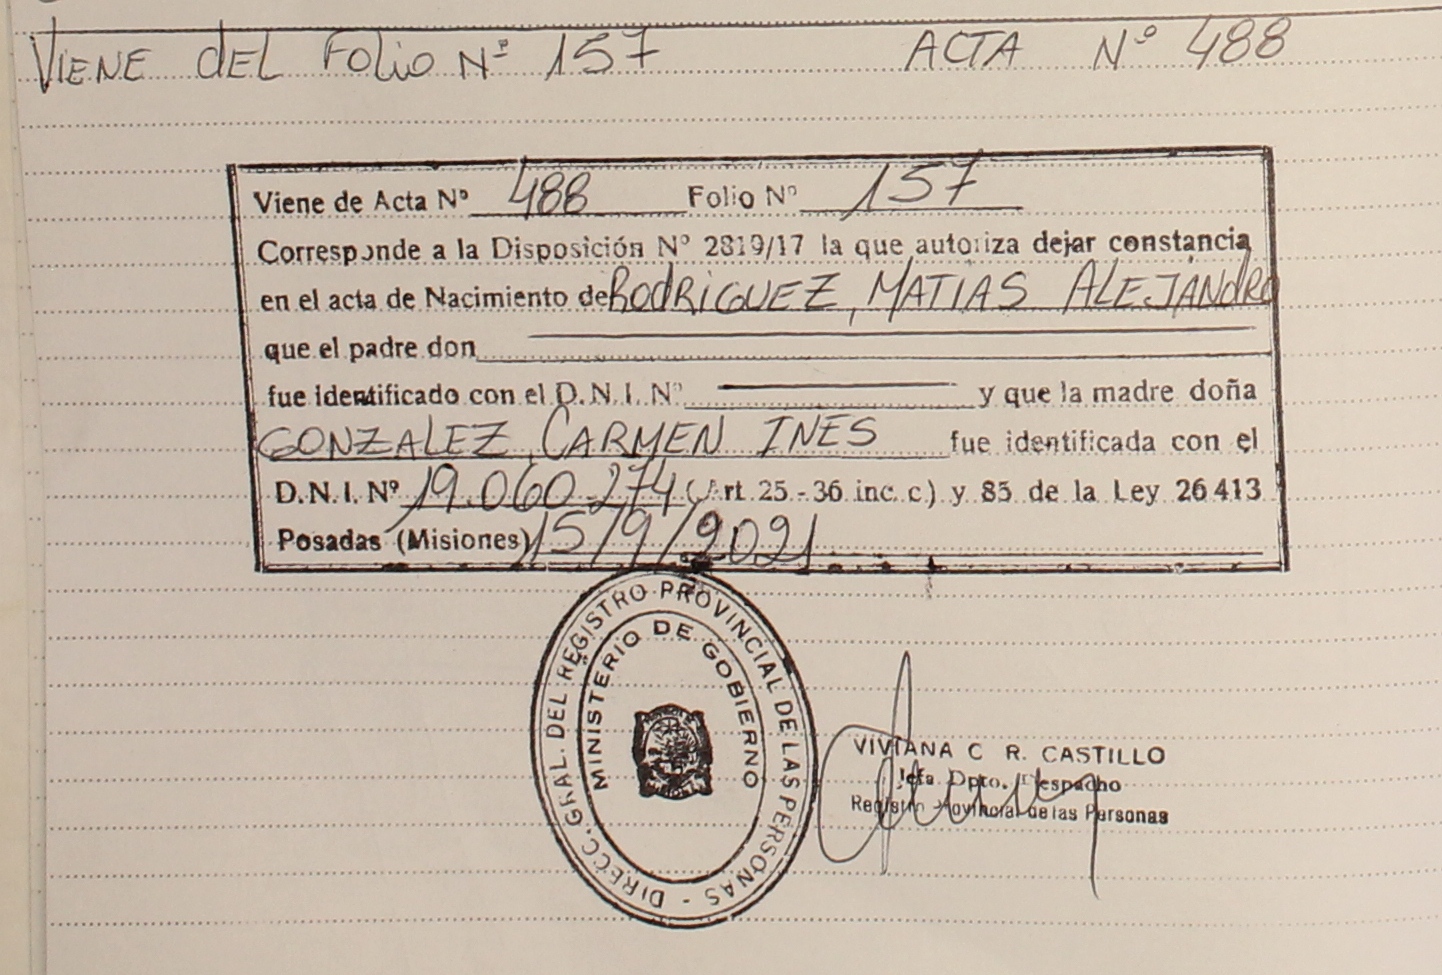 VIENE DEL FOLIO Nº 157 ACTA Nº 488
Viene de Acta Nº 488 Folio Nº 157
Corresponde a la Disposición Nº 2819/17 la que autoriza dejar constancia
en el acta de Nacimiento de RODRIGUEZ, MATIAS ALEJANDRO
que el padre don
fue identificado con el D.N.I. Nº y que la madre doña
GONZALEZ, CARMEN INES fue identificada con el
D.N.I. Nº 19.060.274 (Art 25 - 36 inc. c) y 85 de la Ley 26413
Posadas (Misiones) 15/9/2021
DIRECC. GRAL. DEL REGISTRO PROVINCIAL DE LAS PERSONAS -
MINISTERIO DE GOBIERNO
VIVIANA C R. CASTILLO
Jefa Dpto. Despacho
Registro Provincial de las Personas